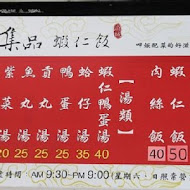 集品蝦仁飯
回娘肥菜的好滋
肉絲飯 40
蝦仁飯 50
【湯類】
蝦仁鴨蛋湯 40
蛤仔湯 35
鴨蛋湯 25
貢丸湯 25
魚丸湯 25
紫菜湯 20
業時間 AM 9:30~PM 9:00 (星期六、日照常營